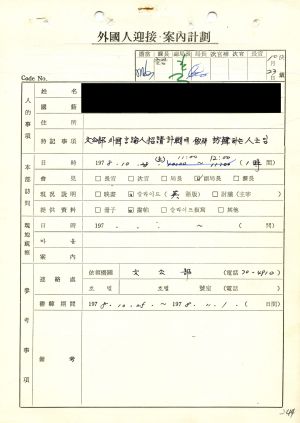 外國人迎接·案內計劃
擔當 課長 副局長 局長 次官補 次官 長官
10月23日
Code No.
人的事項
姓名
國籍
住所
特記事項 文公部 外國言論人招請計劃에 依해 訪韓하는 人士임
本部訪問
日時 1978. 10. 28 (土) 11:00 12:00 (1時間)
會見 □長官 □次官 □局長 ☑副局長 □課長
現況說明 □映畵 ☑슬라이드(英語版) □討議(主宰)
提供資料 □冊子 ☑畵帖 □슬라이드複寫 □其他
現地視察
日時 197 . . ~ . . (日間)
마을
案內
參考事項
連絡處 依賴機關 文公部 (電話 70-4910)
호텔 호텔 號室 (電話 )
滯韓期間 1978. 10. 28. ~ 1978. 11. 1. (日間)
備考
244